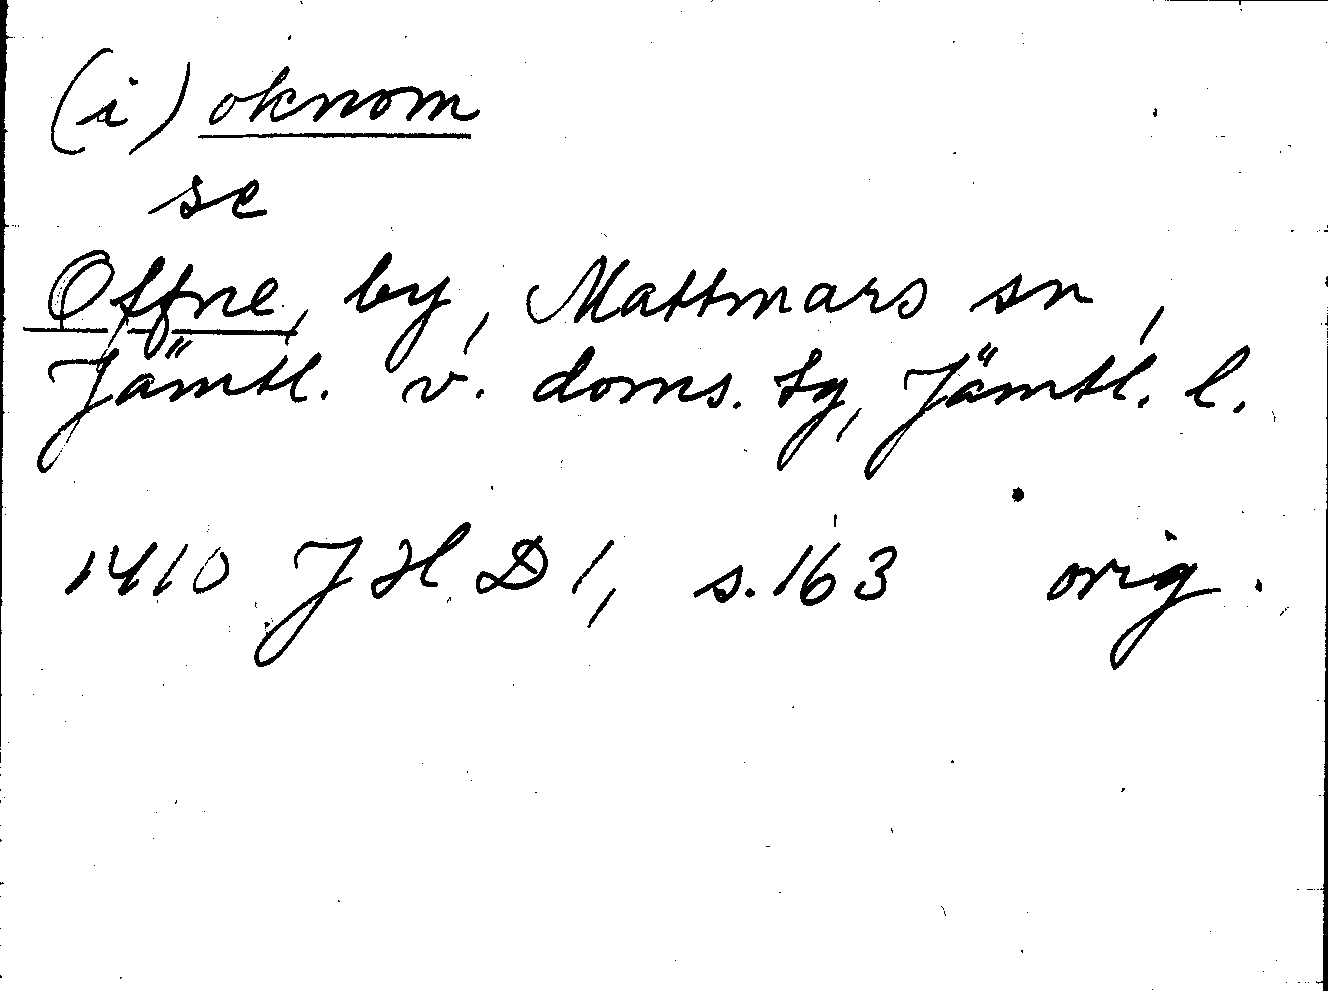 (i) oknom
se
Offne, by, Mattmars sn,
Jämtl. v. doms. tg, Jämtl. l.
1410 JHD 1, s. 163 orig.